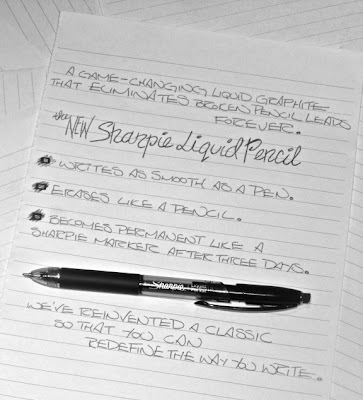 A GAME-CHANGING LIQUID GRAPHITE
THAT ELIMINATES BROKEN PENCIL LEADS
FOREVER.
the NEW Sharpie Liquid Pencil
WRITES AS SMOOTH AS A PEN.
ERASES LIKE A PENCIL.
BECOMES PERMANENT LIKE A
SHARPIE MARKER AFTER THREE DAYS.
Sharpie
WE'VE REINVENTED A CLASSIC
SO THAT YOU CAN
REDEFINE THE WAY YOU WRITE.